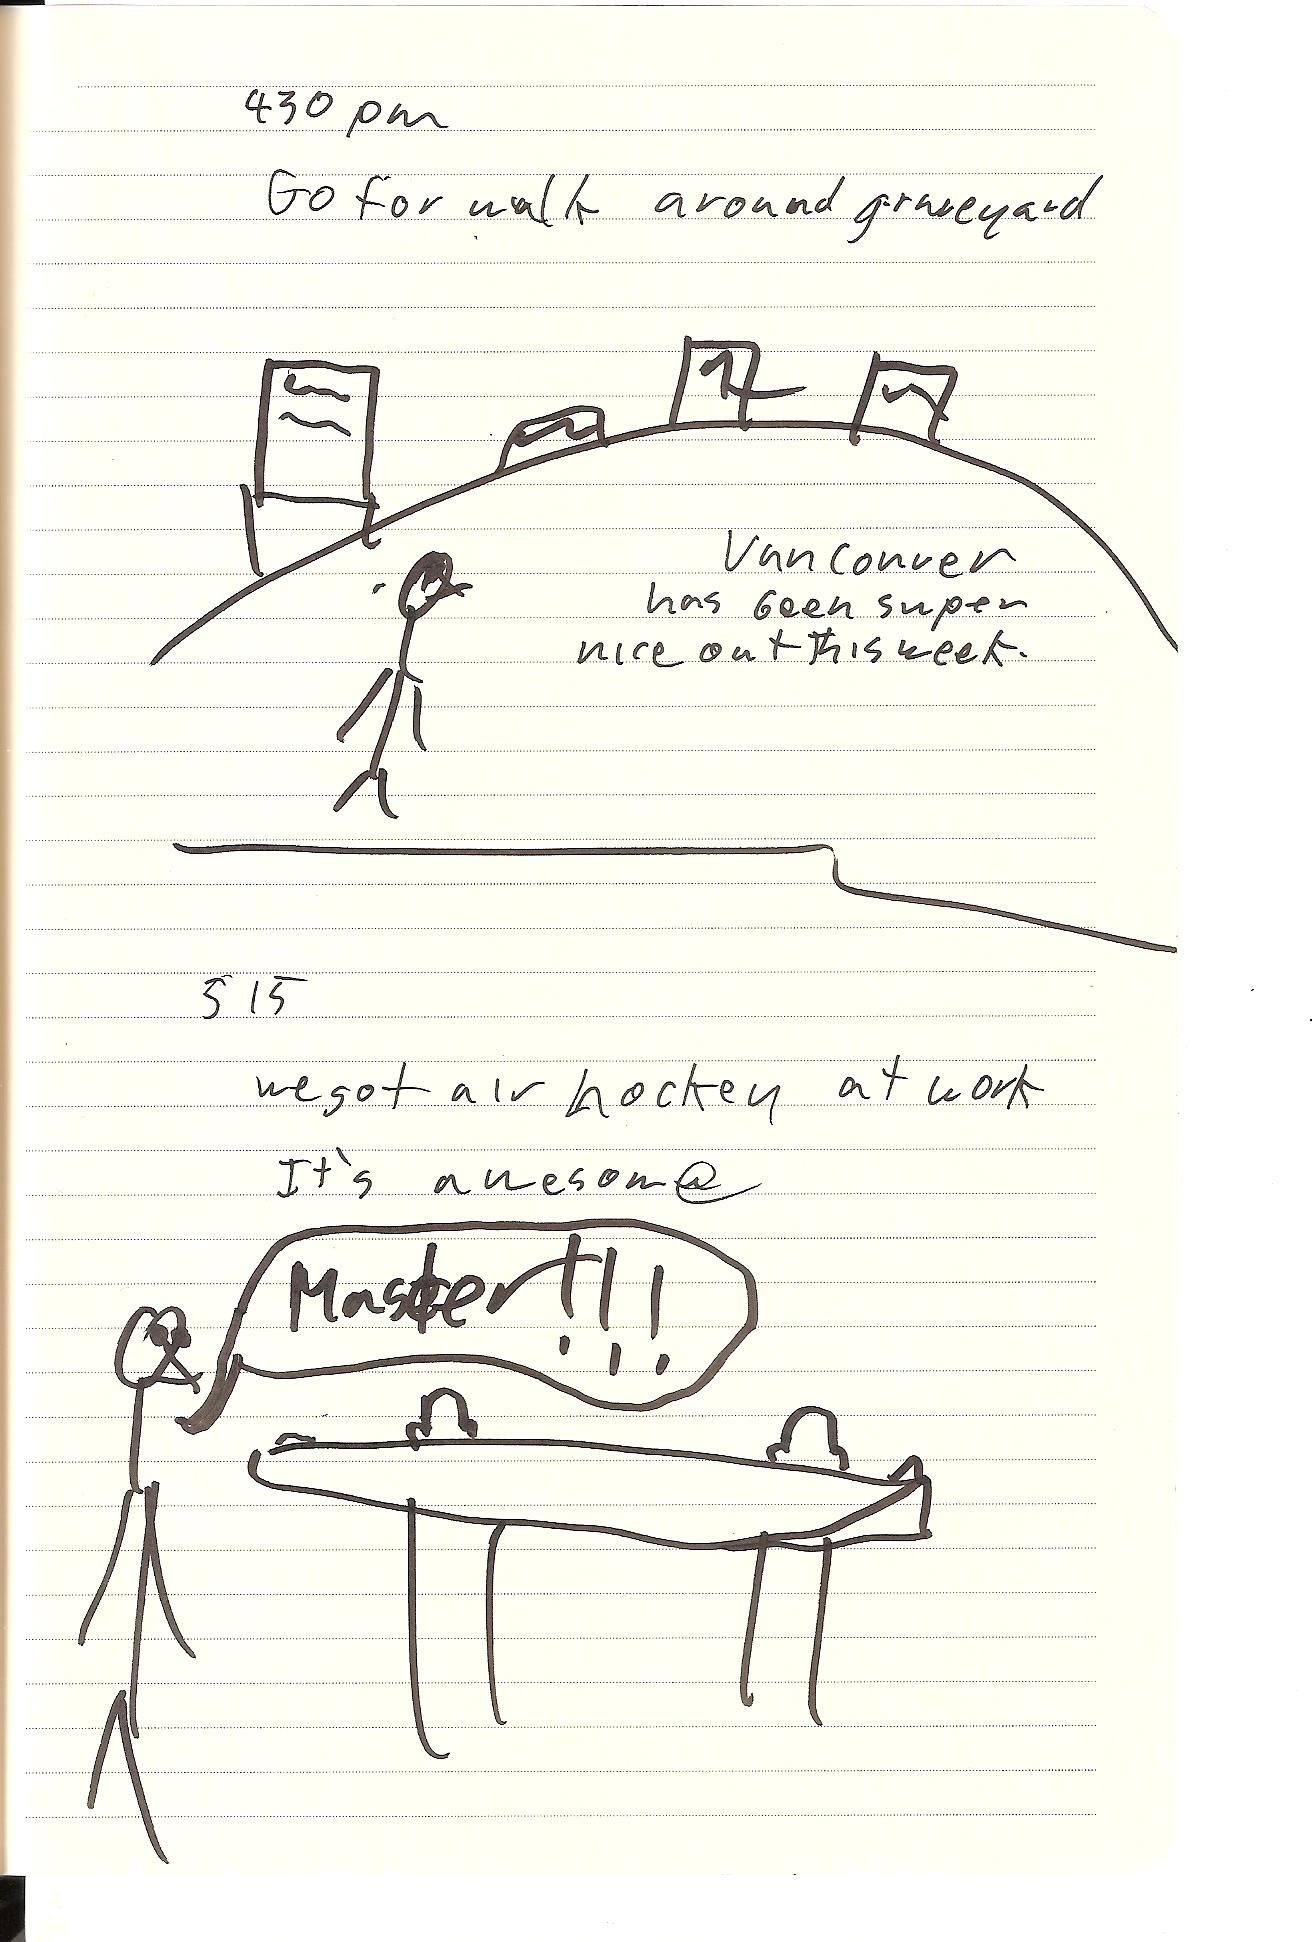 430 pm
Go for walk around graveyard
Vancouver
has been super
nice out this week.
5 15
we got air hockey at work
It's awesome
Master!!!